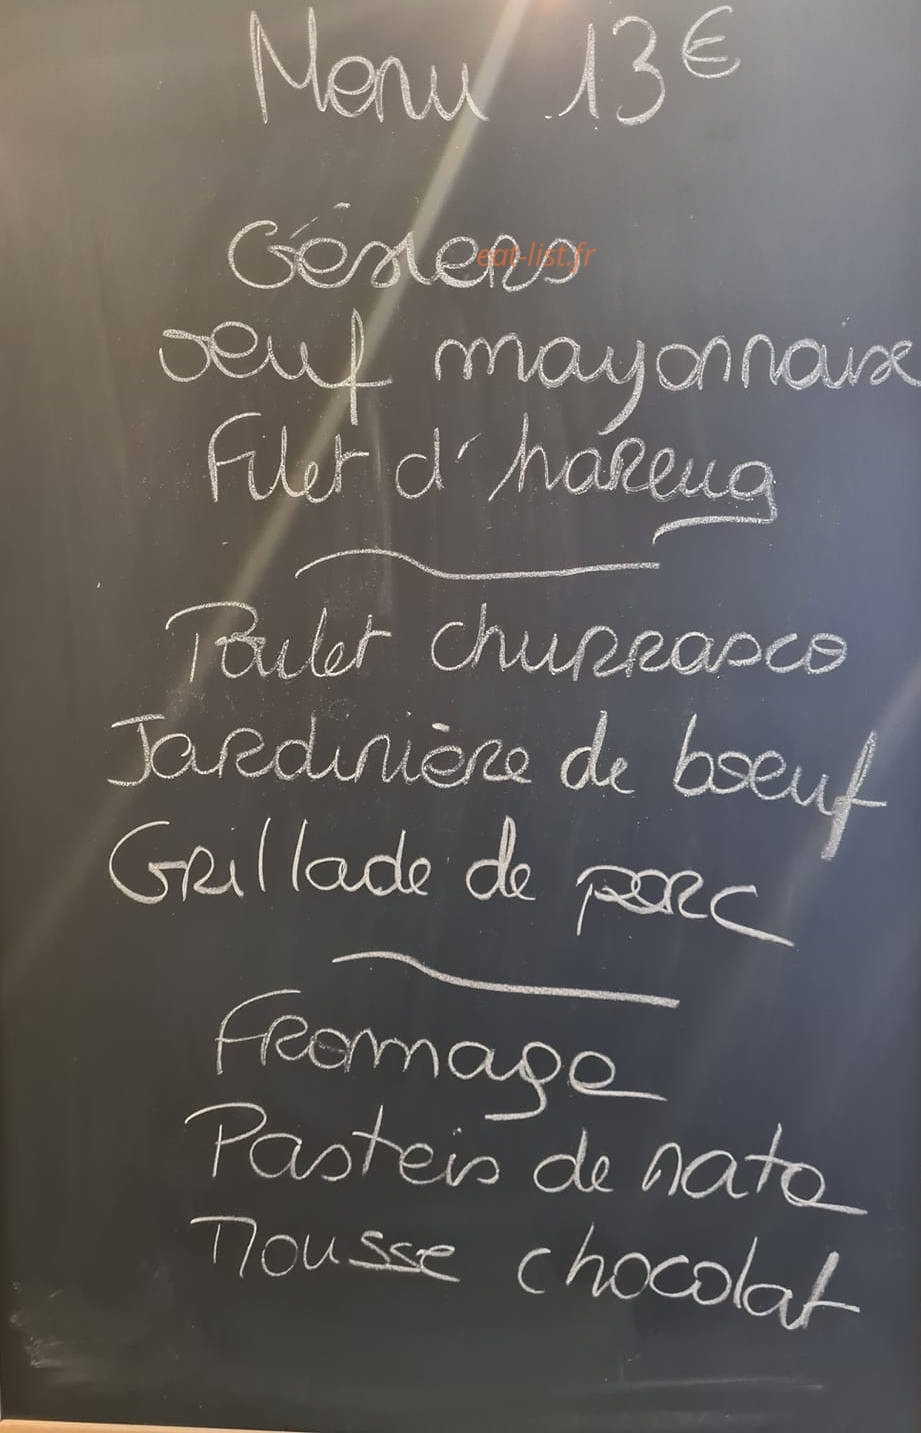 Menu 13€
Gésiers
eat-list.fr
oeuf mayonnaise
Filet d'hareng
Poulet churrasco
Jardinière de boeuf
Grillade de porc
Fromage
Pasteis de nata
Mousse chocolat